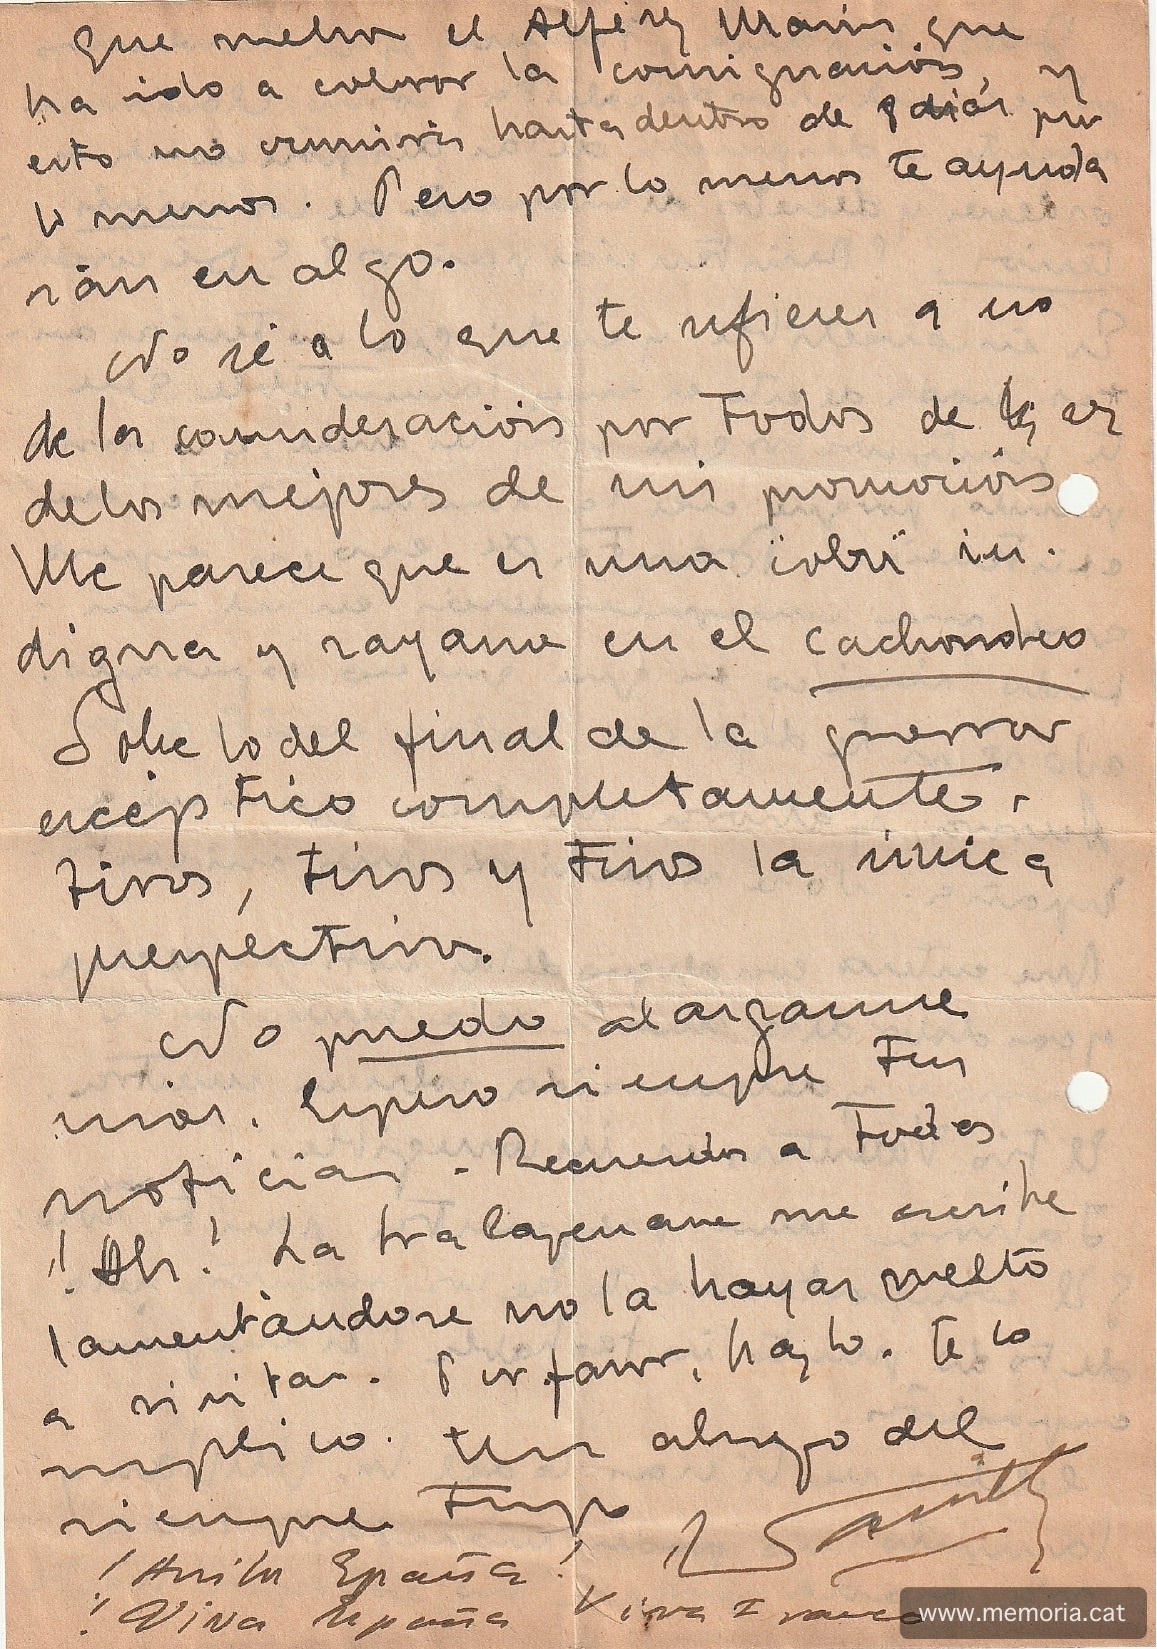 que vuelva el Alférez Marín que
ha ido a cobrar la consignación, y
esto no ocurrirá hasta dentro de 8 días por
lo menos. Pero por lo menos te ayuda
rán en algo.
No sé a lo que te refieres a eso
de la consideración por todos de ser
de los mejores de mi promoción
Me parece que es una "coba" in-
digna y rayana en el cachondeo
Sobre lo del final de la guerra
escéptico completamente.
tiros, tiros y tiros la única
perspectiva.
No puedo alargarme
más. Espero siempre tus
noticias. Recuerdos a todos
¡Ah! La me escribe
lamentándose no la hayas vuelto
a visitar. Por favor, hazlo. te lo
suplico. Un abrazo del
siempre tuyo
¡Arriba España!
¡Viva España Viva Franco
www.memoria.cat